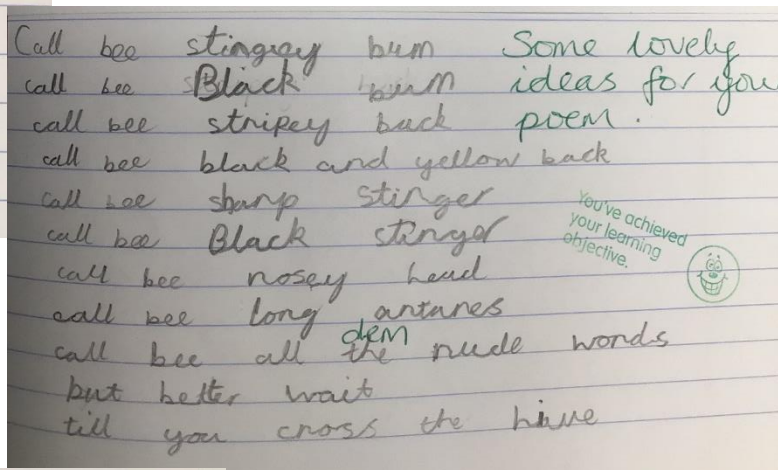 Call bee stingray bum
call bee Black bum
call bee stripey back
call bee black and yellow back
call bee sharp stinger
call bee Black stinger
call bee nosey head
call bee long antunes
call bee all the dem nude words
but better wait
till you cross the hive
Some lovely
ideas for you
poem.
You've achieved
your learning
objective.